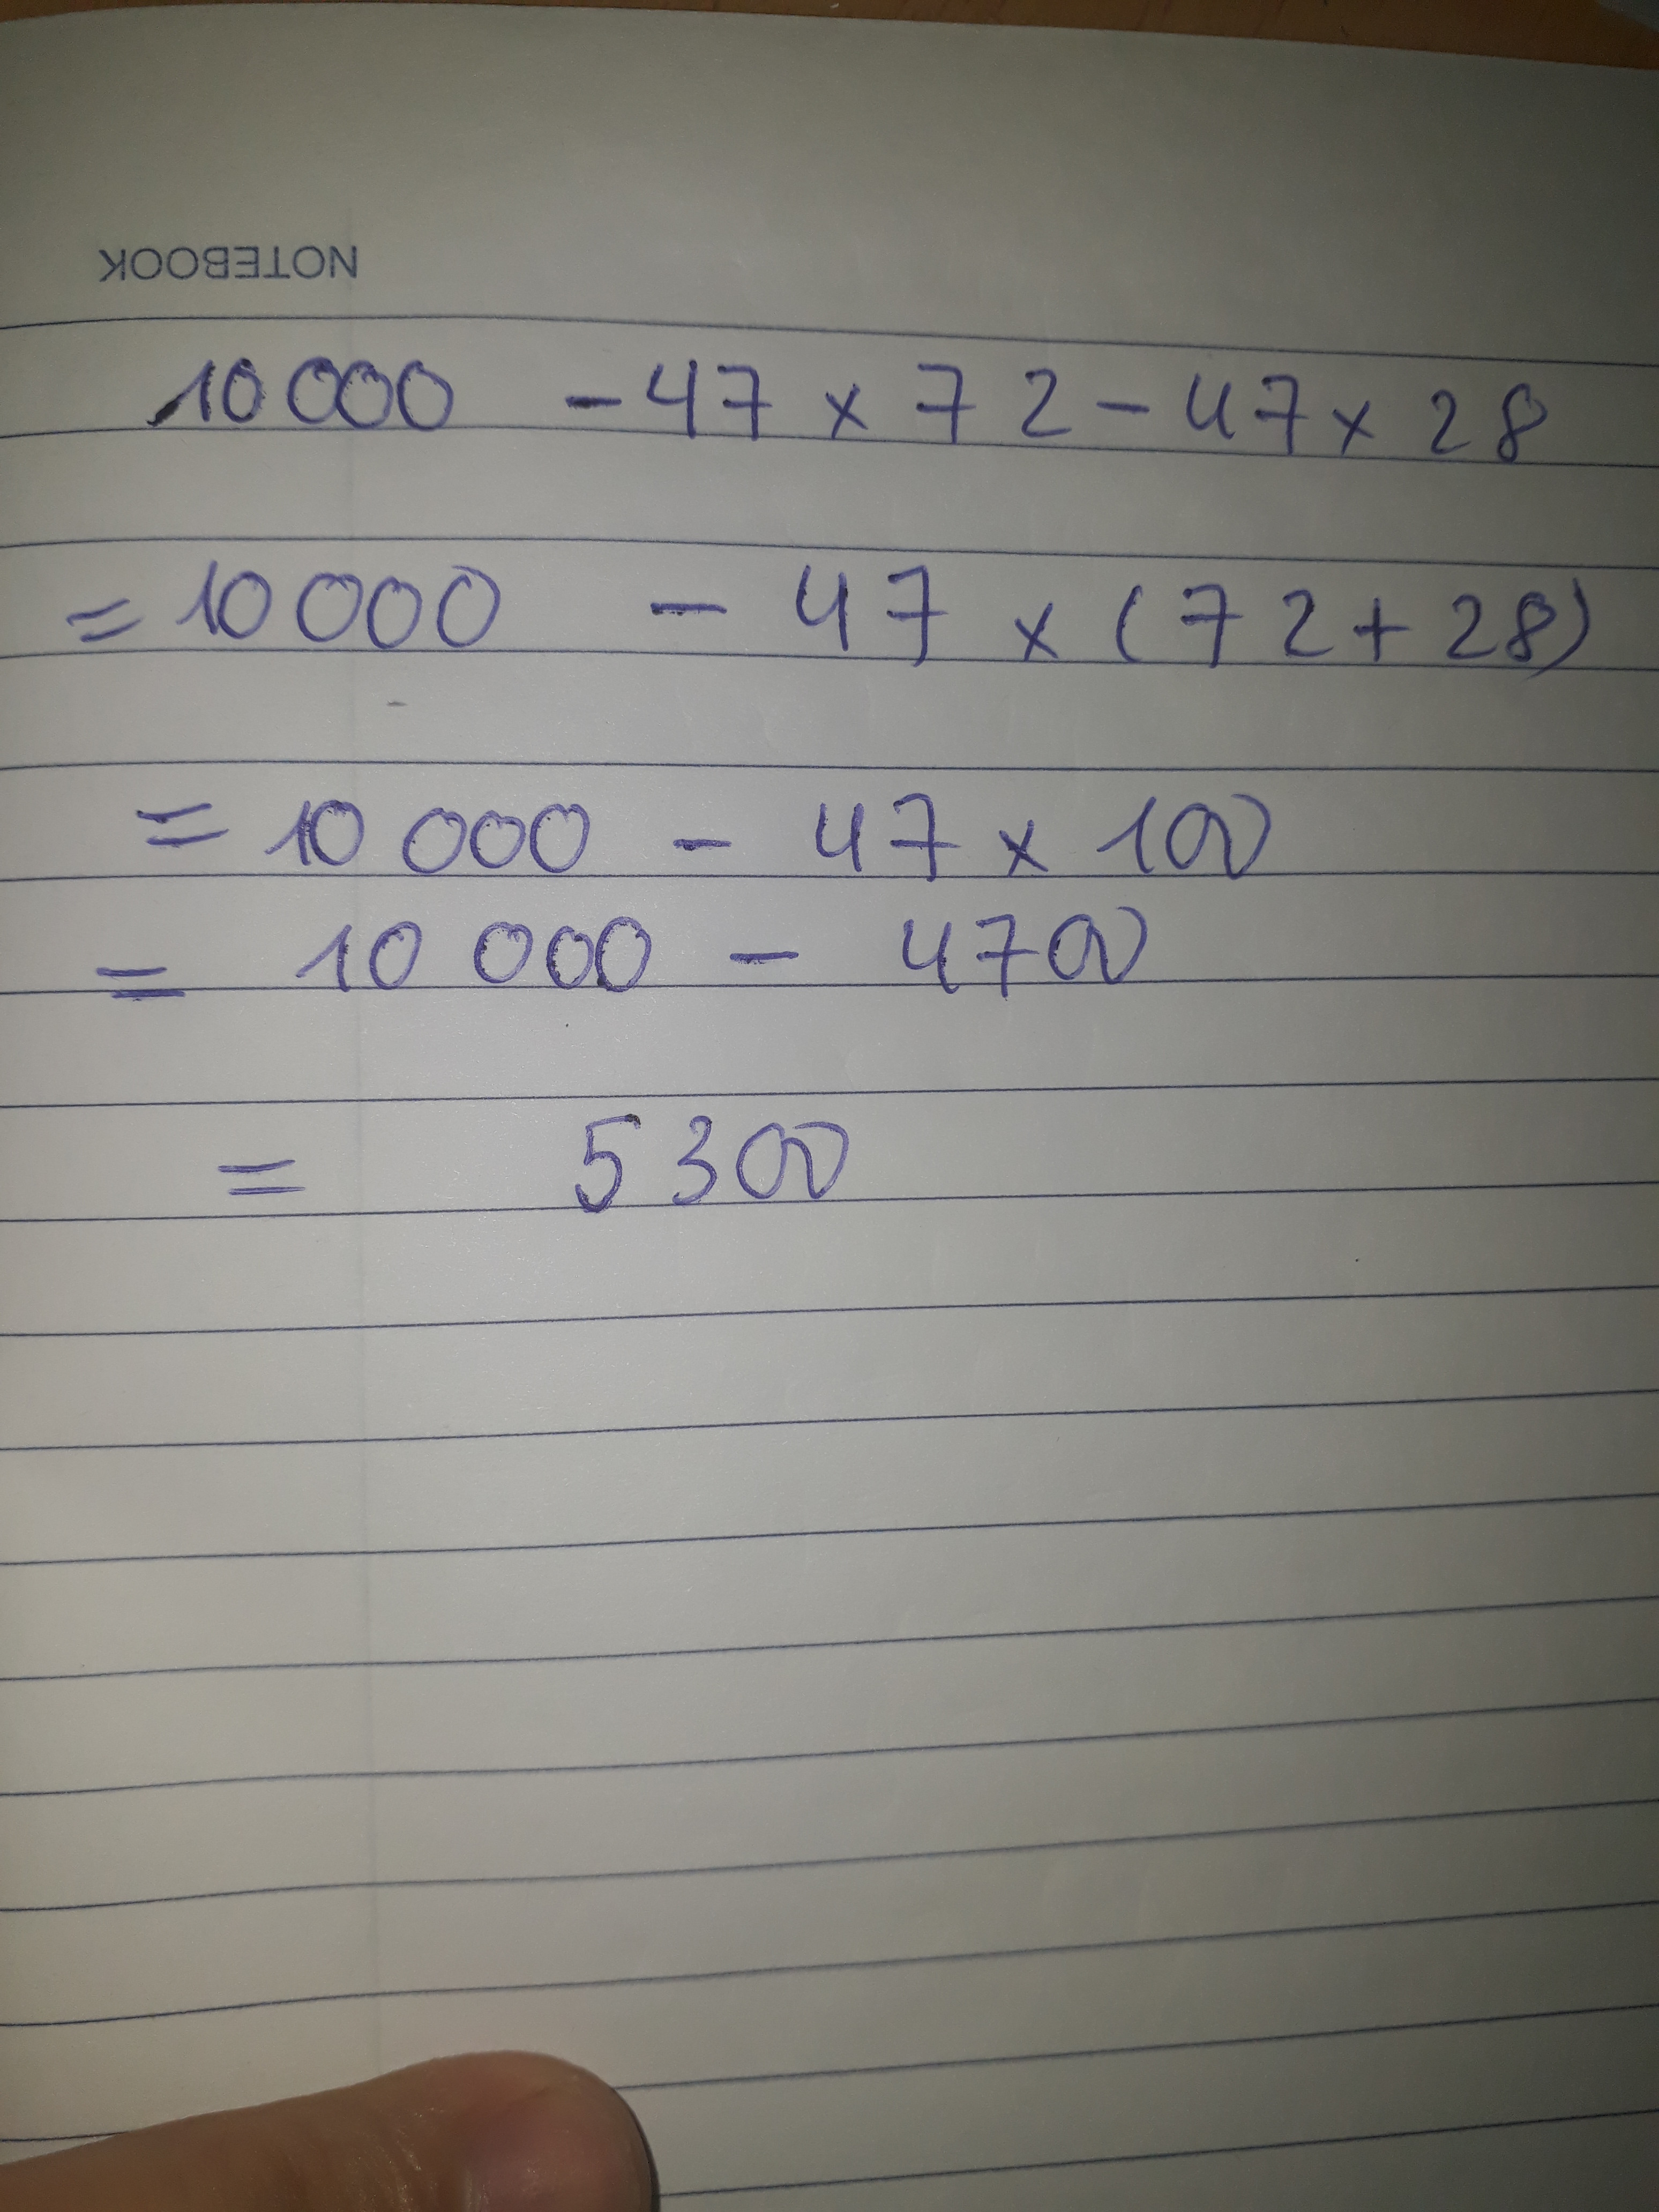 NOTEBOOK
10 000 - 47 x 72 - 47 x 28
= 10 000 - 47 x (72 + 28)
= 10 000 - 47 x 100
= 10 000 - 4700
= 5300